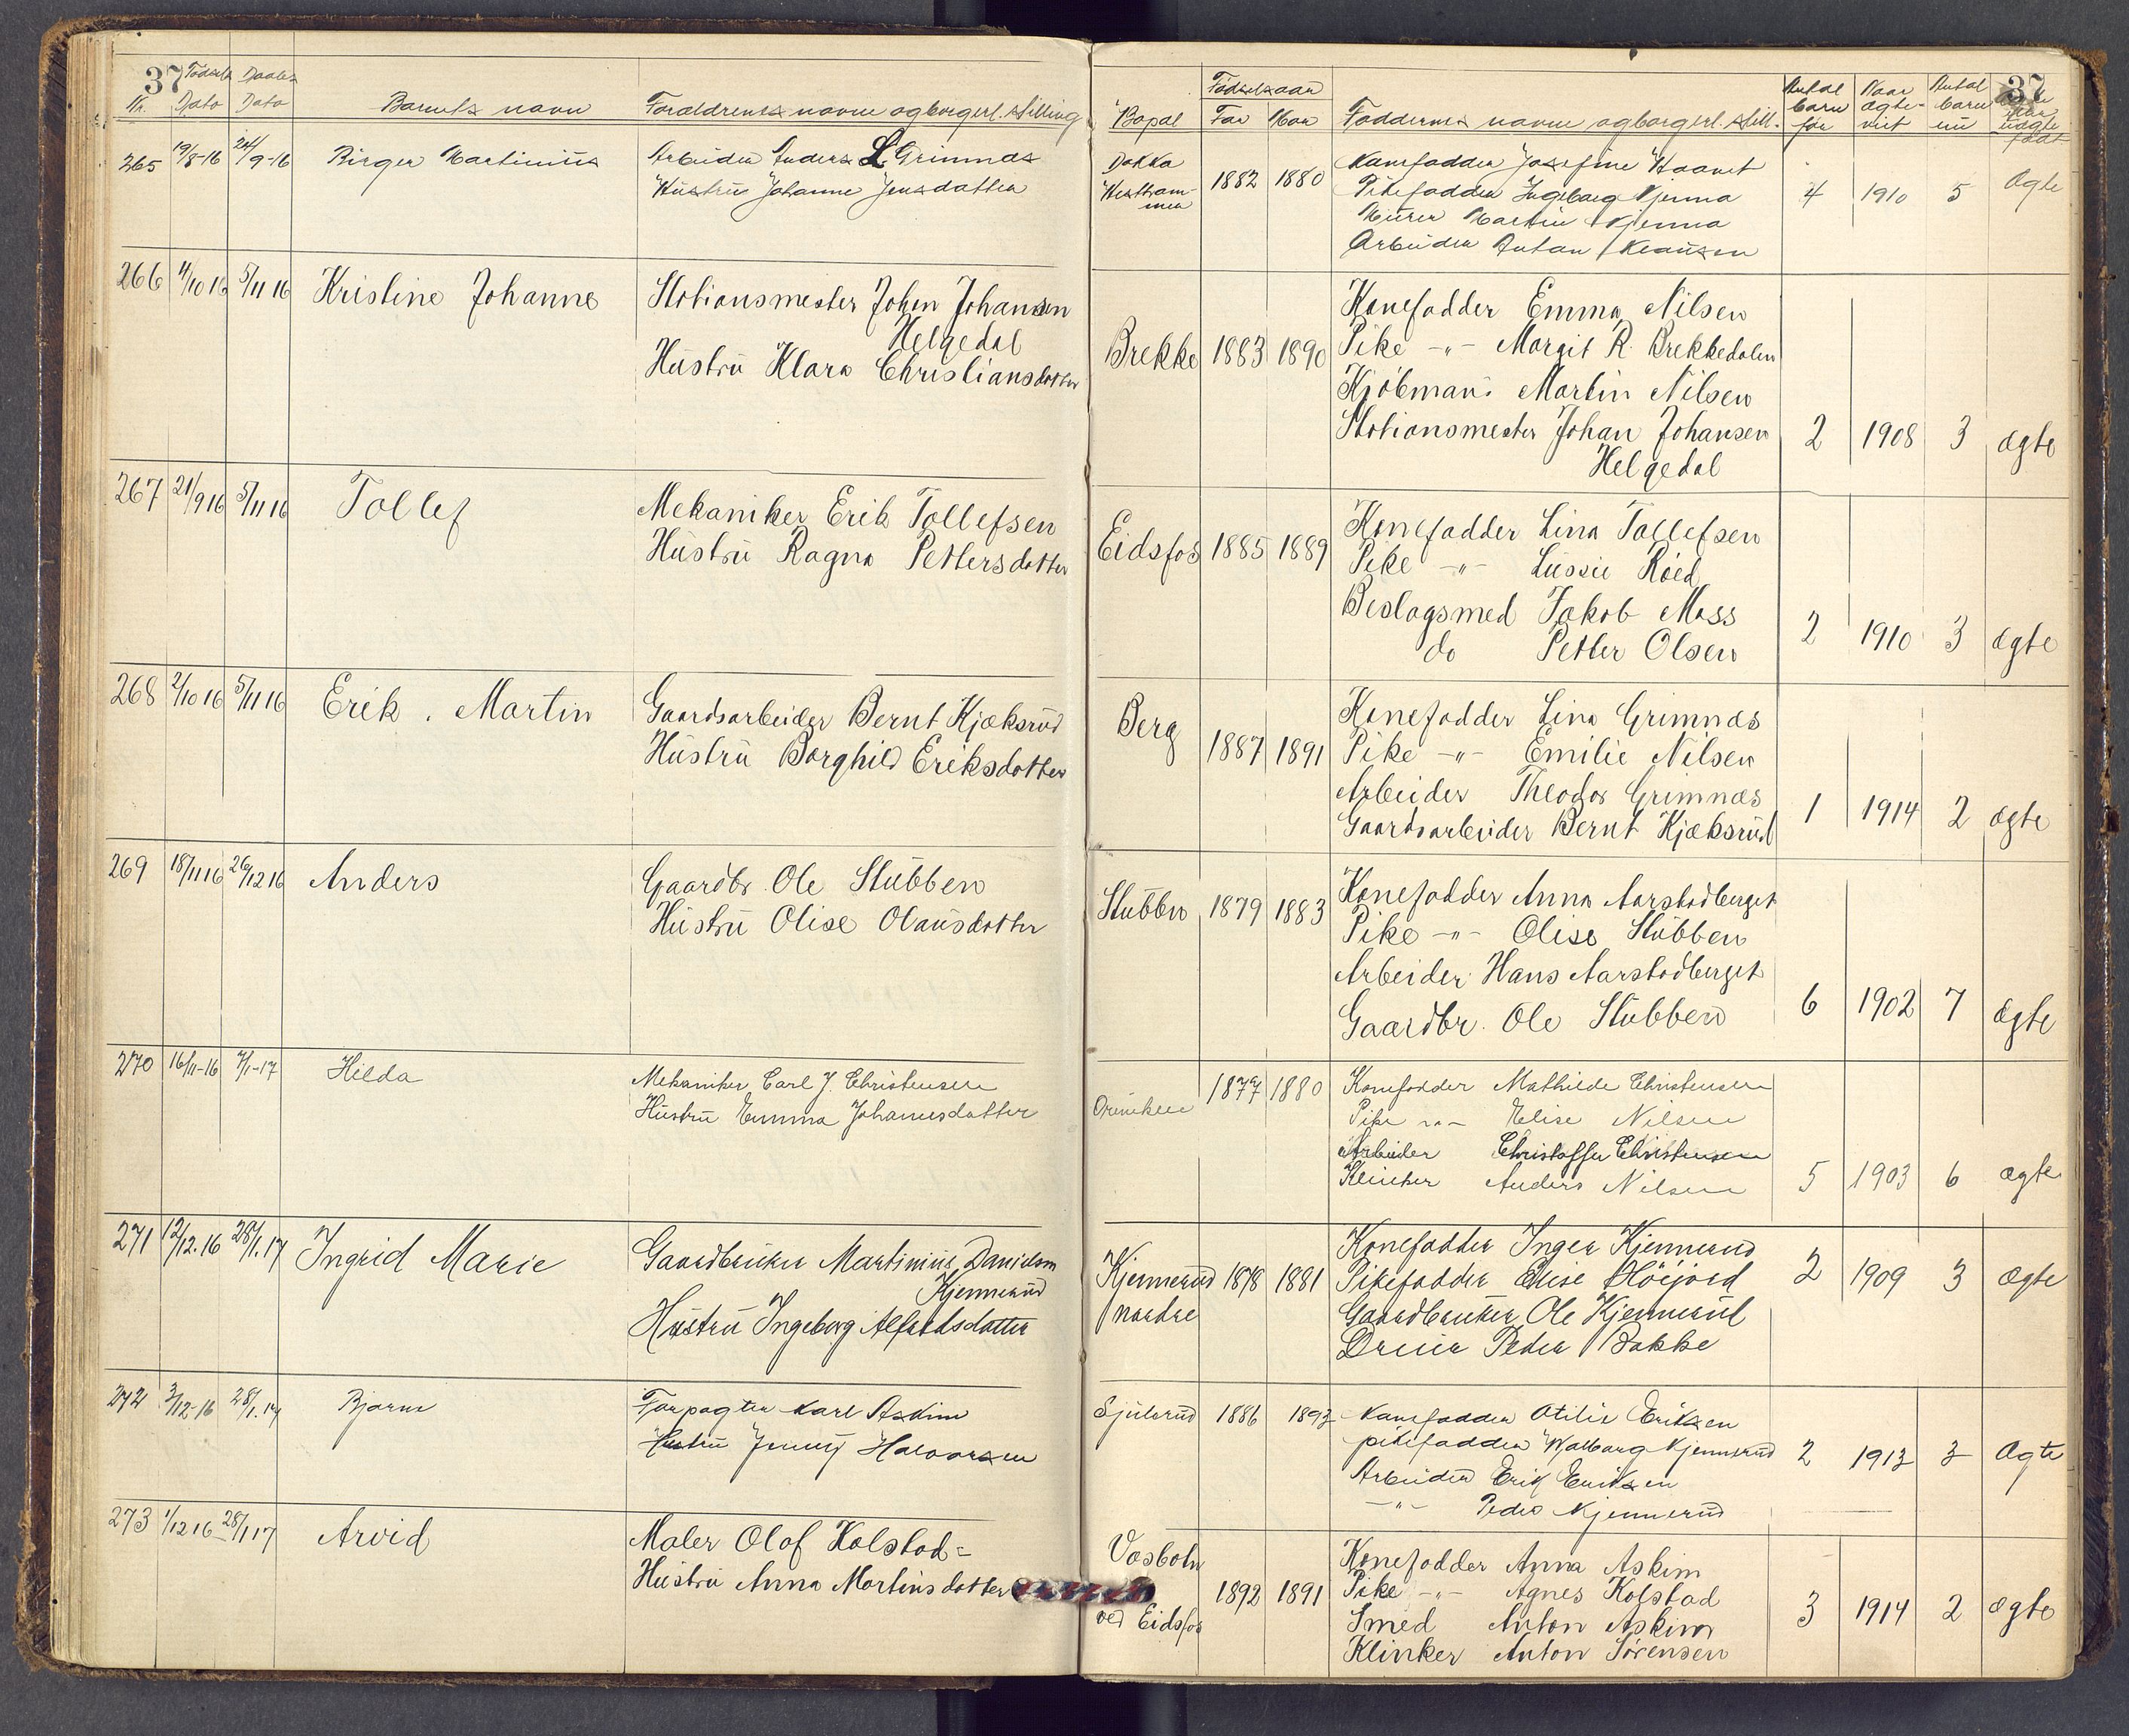 37
Nr. Fødsels Dato Daabs Dato Barnets navn Forældrenes navne og borgerl. stilling
265 19/8-16 24/9-16 Birger Martinius Arbeider Anders L. Grimnæs
Hustru Johanne Jensdatter
266 4/10 16 5/11 16 Kristine Johanne Stationsmester Johan Johansen
Helgedal
Hustru Klara Christiansdatter
267 21/9 16 5/11 16 Tollef Mekaniker Erik Tollefsen
Hustru Ragna Pettersdatter
268 2/10 16 5/11 16 Erik Martin Gaardsarbeider Bernt Kjæksrud
Hustru Borghild Eriksdatter
269 18/11 16 26/12 16 Anders Gaardbr. Ole Stubben
Hustru Olise Olausdatter
270 16/11-16 7/1-17 Hilda Mekaniker Carl J. Christensen
Hustru Emma Johannesdatter
271 12/12.16 28/1.17 Ingrid Marie Gaardbruker Martinius Danielsen
Kjennerud
Hustru Ingeborg Alfredsdatter
272 3/12-16 28/1.17 Bjarne Forpagter Karl Askim
Hustru Jenny Halvorsen
273 1/12 16 28/1 17 Arvid Maler Olof Kolstad
Hustru Anna Martinsdatter
37
Bopæl Fødselsaar Far Mor Faddernes navne og borgerl. still. Antal barn før Naar ægteviet Antal barn nu
Konefadder Josefine
4 1910 5 Ægte
1882 1880 Pikefadder Ingeborg Kjenna
Murer Martin Kjenna
Arbeider Anton Klausen
Konefadder Emma Nilsen
Brekke 1883 1890 Pike -"- Margit R. Brekkedalen
Kjöbmand Martin Nilsen
Stationsmester Johan Johansen 2 1908 3 ægte
Helgedal
Konefadder Lina Tollefsen
Eidsfos 1885 1889 Pike -"- Lussie Röed
Beslagsmed Jakob Moss
do Petter Olsen 2 1910 3 ægte
Konefadder Lina Grimnæs
Berg 1887 1891 Pike -"- Emilie Nilsen
Arbeider Theodor Grimnæs
Gaardsarbeider Bernt Kjæksrud 1 1914 2 ægte
Konefadder Anna Aarstadberget
Stubben 1879 1883 Pike -"- Olise Stubben
Arbeider Hans Aarstadberget
Gaardbr. Ole Stubben 6 1902 7 ægte
1877 1880 Konefadder Mathilde Christensen
Pike -"- Elise Nilsen
Arbeider Christoffer Christensen
Klinker Anders Nilsen 5 1903 6 ægte
Konefadder Inger Kjennerud
Kjennerud nordre 1878 1881 Pikefadder Elise Höijord 2 1909 3 ægte
Gaardbruker Ole Kjennerud
Dreier Peder Bakke
Sjulsrud 1886 1893 Konefadder Otilie Eriksen
pikefadder Walborg Kjennerud 2 1913 3 Ægte
Arbeider Erik Eriksen
-"- Peder Kjennerud
Vasbotn Konefadder Anna Askim
1892 1891 Pike -"- Agnes Kolstad
ved Eidsfos Smed Anton Askim 3 1914 2 ægte
Klinker Anton Sørensen